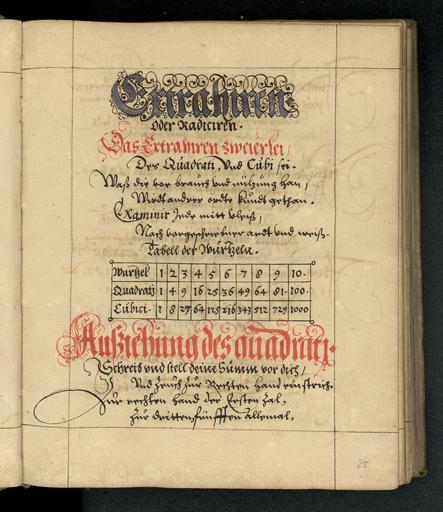 Extrahiren
oder Radiciren.
Das Extrahiren zweierlei /
Der Quadrati, Vnd Cubi sei.
Waß die vor brauch vnd nützung han /
Wirdt andrer ordte kundt gethan.
Examinir Jede mitt vleiß /
Nach vorgeschribner ardt vnd weiß.
Tabell der Wurtzeln.
Wurtzel 1 2 3 4 5 6 7 8 9 10.
Quadrati 1 4 9 16 25 36 49 64 81. 100.
Cubici. 1 8 27 64 125 216 343 512 729 1000
Außziehung des quadrati.
Schreib vnd stell deine Summ vor dich /
Vnd zeuch zur Rechten hand ein strich.
Zur rechten hand der Ersten zal,
Zur dritten, fünfften allemal,
25